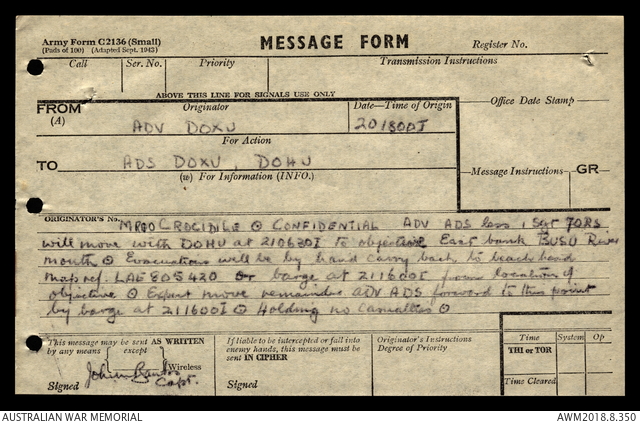 Army Form C2136 (Small)
(Pads of 100) (Adapted Sept. 1943)
MESSAGE FORM
Register No.
Call Ser. No. Priority Transmission Instructions
ABOVE THIS LINE FOR SIGNALS USE ONLY
FROM
(A)
Originator
Date—Time of Origin
Office Date Stamp
ADV DOXU
201800I
For Action
TO
ADS DOXU, DOHU
(w) For Information (INFO.)
Message Instructions GR
ORIGINATOR'S No.
CROCIDILE CONFIDENTIAL ADV ADS less 1
will move with DOHU at 210630I to objective East bank BUSU River
mouth Evacuations will be by hand carry back to beach head
map ref. LAE 805420 barge at 211600I from location of
objective Expect move remainder ADV ADS forward to this point
by barge at 211600I Holding no Casualties
This message may be sent AS WRITTEN
by any means except
Wireless
Signed
Capt.
If liable to be intercepted or fall into
enemy hands, this message must be
sent IN CIPHER
Signed
Originator's Instructions
Degree of Priority
Time System Op
THI or TOR
Time Cleared
AUSTRALIAN WAR MEMORIAL
AWM2018.8.350